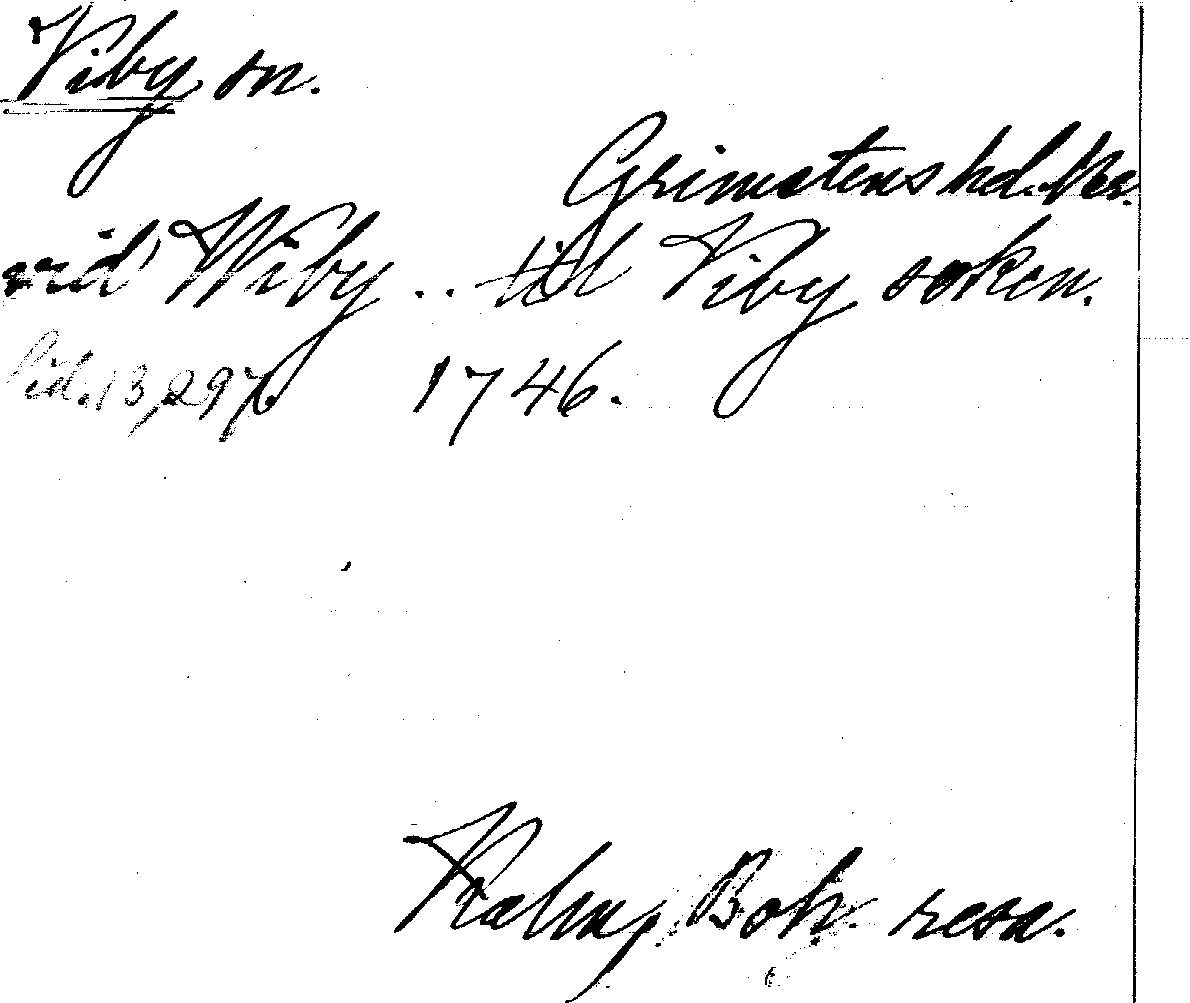 Viby sn.
Grimstens hd. Nke.
vid Wiby .. till Viby soken.
Sid. 13, 297. 1746.
Kalm, Boh. resa.